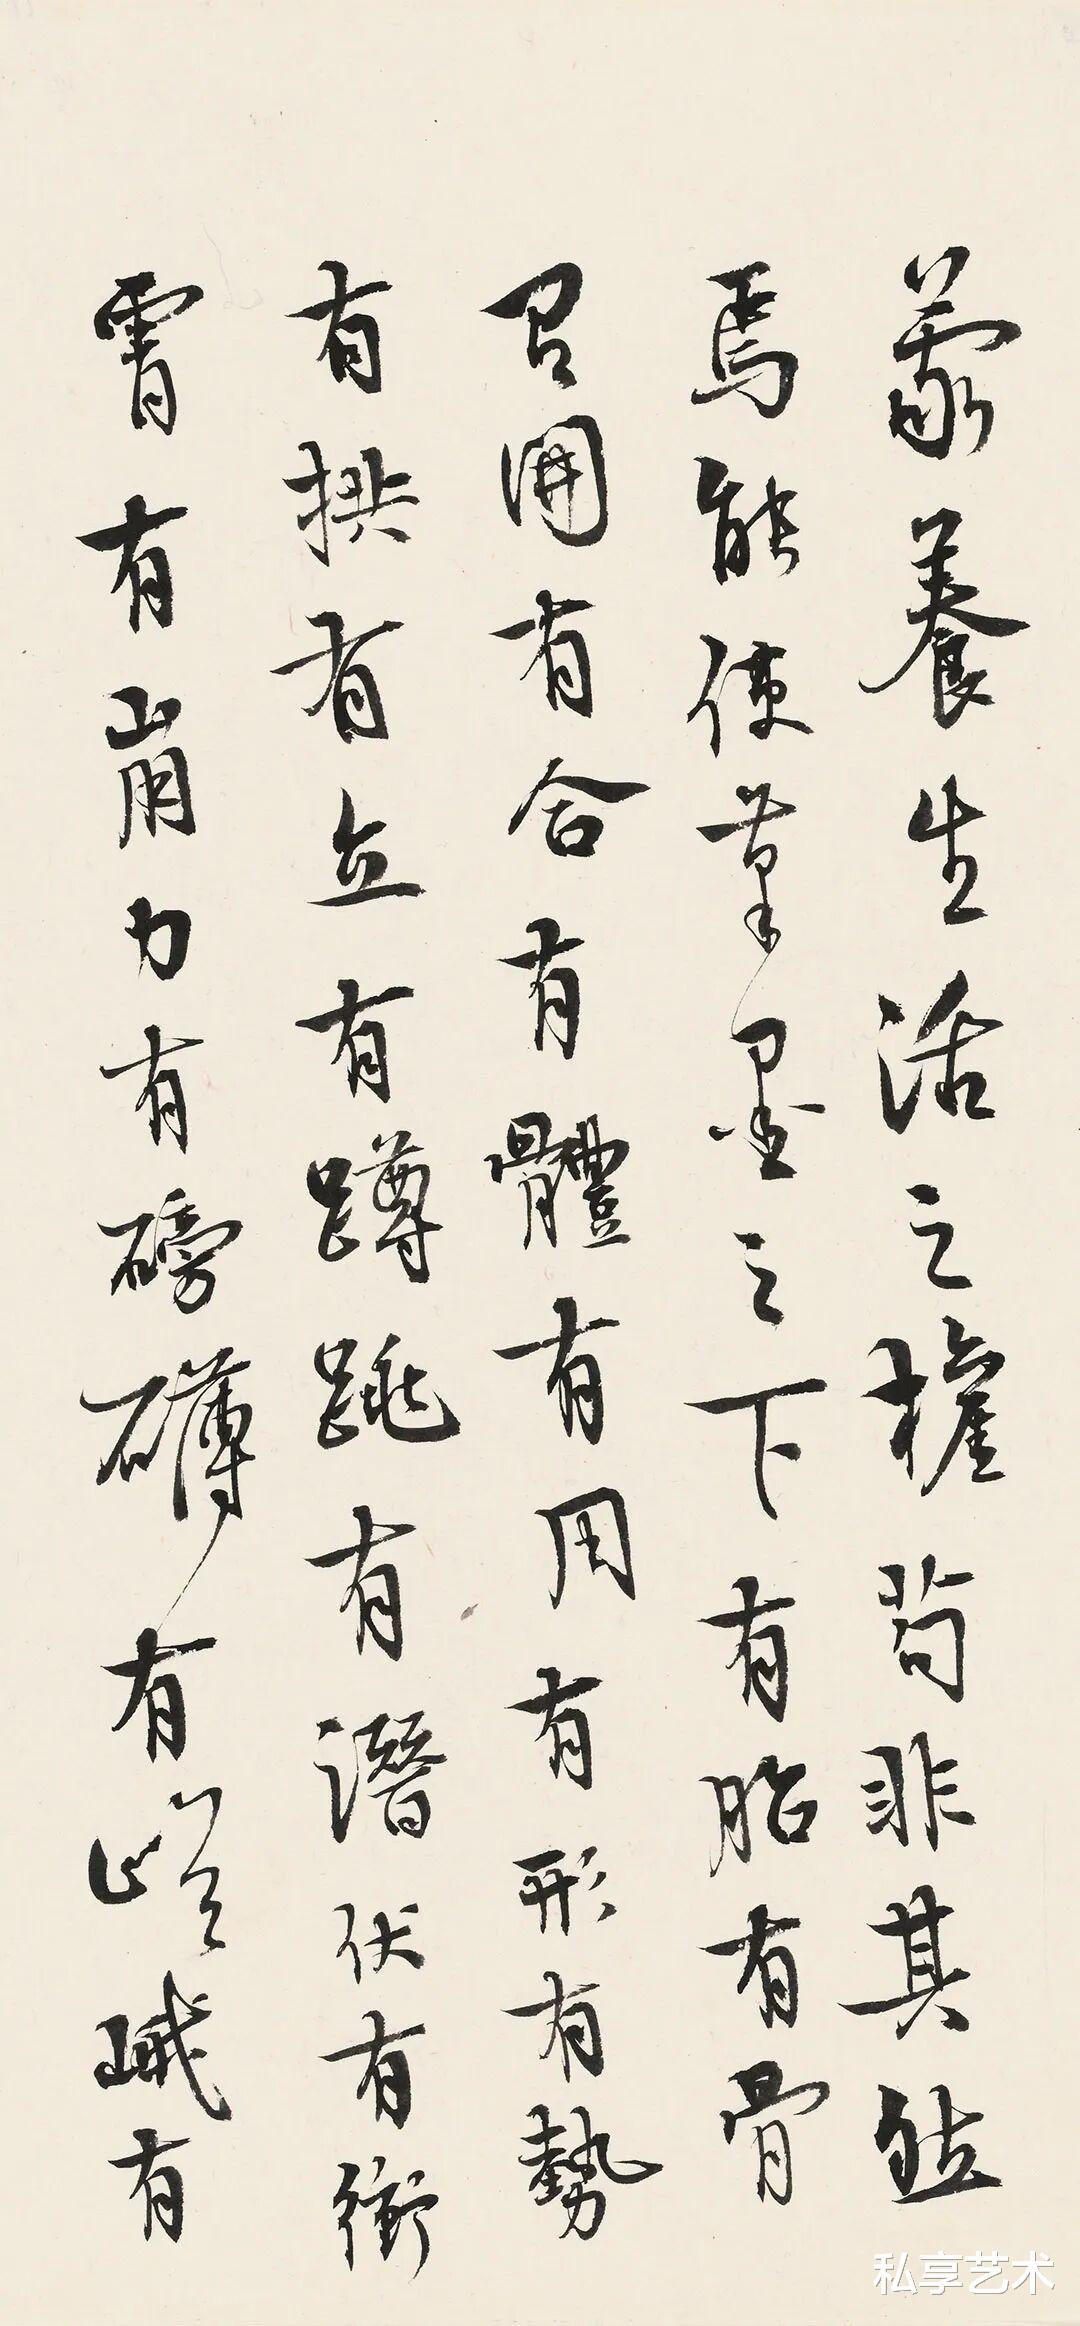 蒙養生活之權苟非其然
焉能使筆墨之下有胎有骨
有開有合有體有用有形有勢
有拱有立有蹲跳有潛伏有衝
霄有崩力有磅礴有嵯峨有
私享艺术